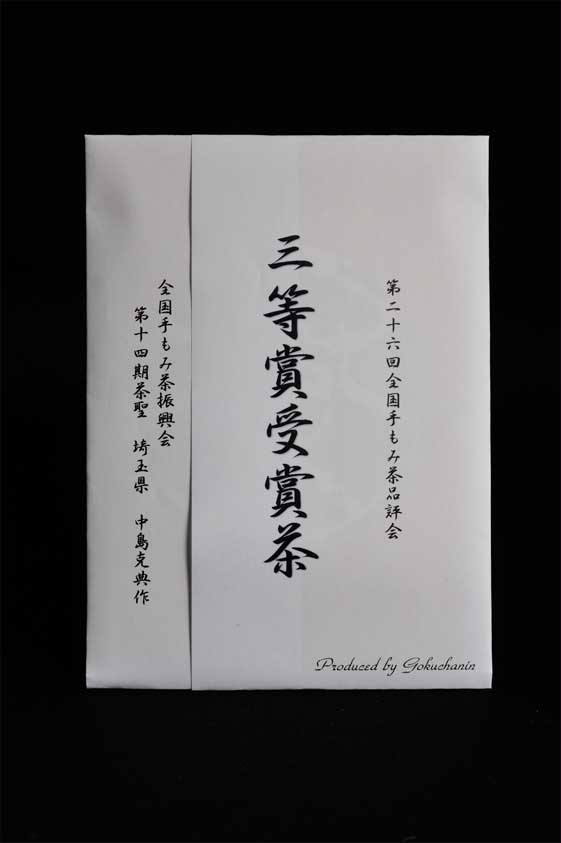 第二十六回全国手もみ茶品評会
三等賞受賞茶
全国手もみ茶振興会
第十四期茶聖 埼玉県 中島克典作
Produced by Gokuchanin